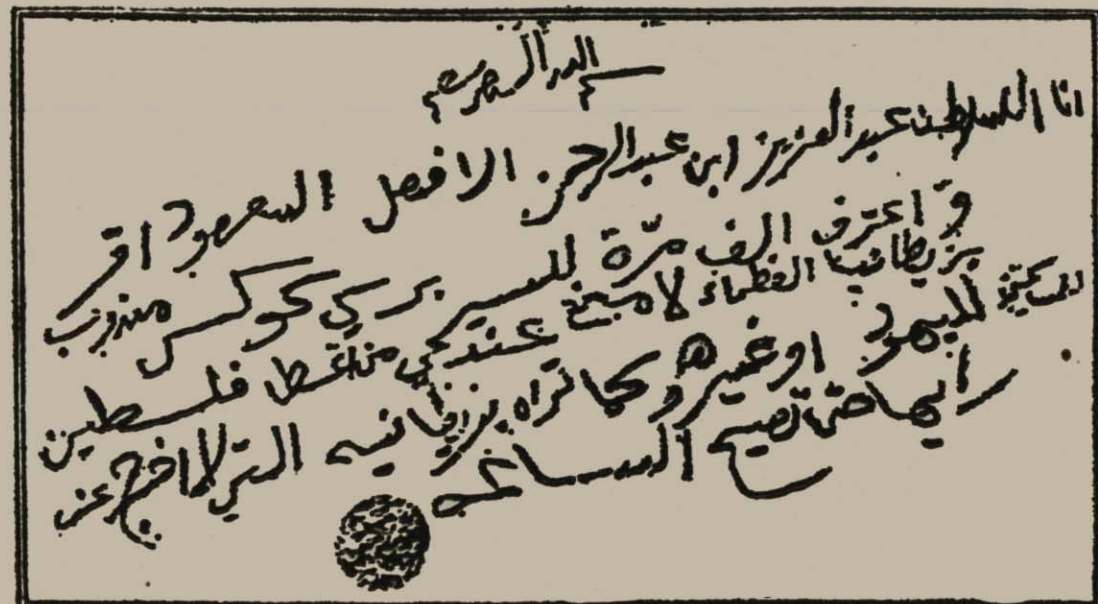 بسم الله الرحمن الرحيم
انا السلطان عبد العزيز ابن عبد الرحمن الافصل السعود اقر
و اعترف الف مرة للسير برسي كوكس مندوب
بريطانيا العظماء لا مانع عندي من اعطا فلسطين
لليهود او غيرهم و كما تراه بريطانيه التي لا اخرج عن
رايها حتى تصيح الساعه